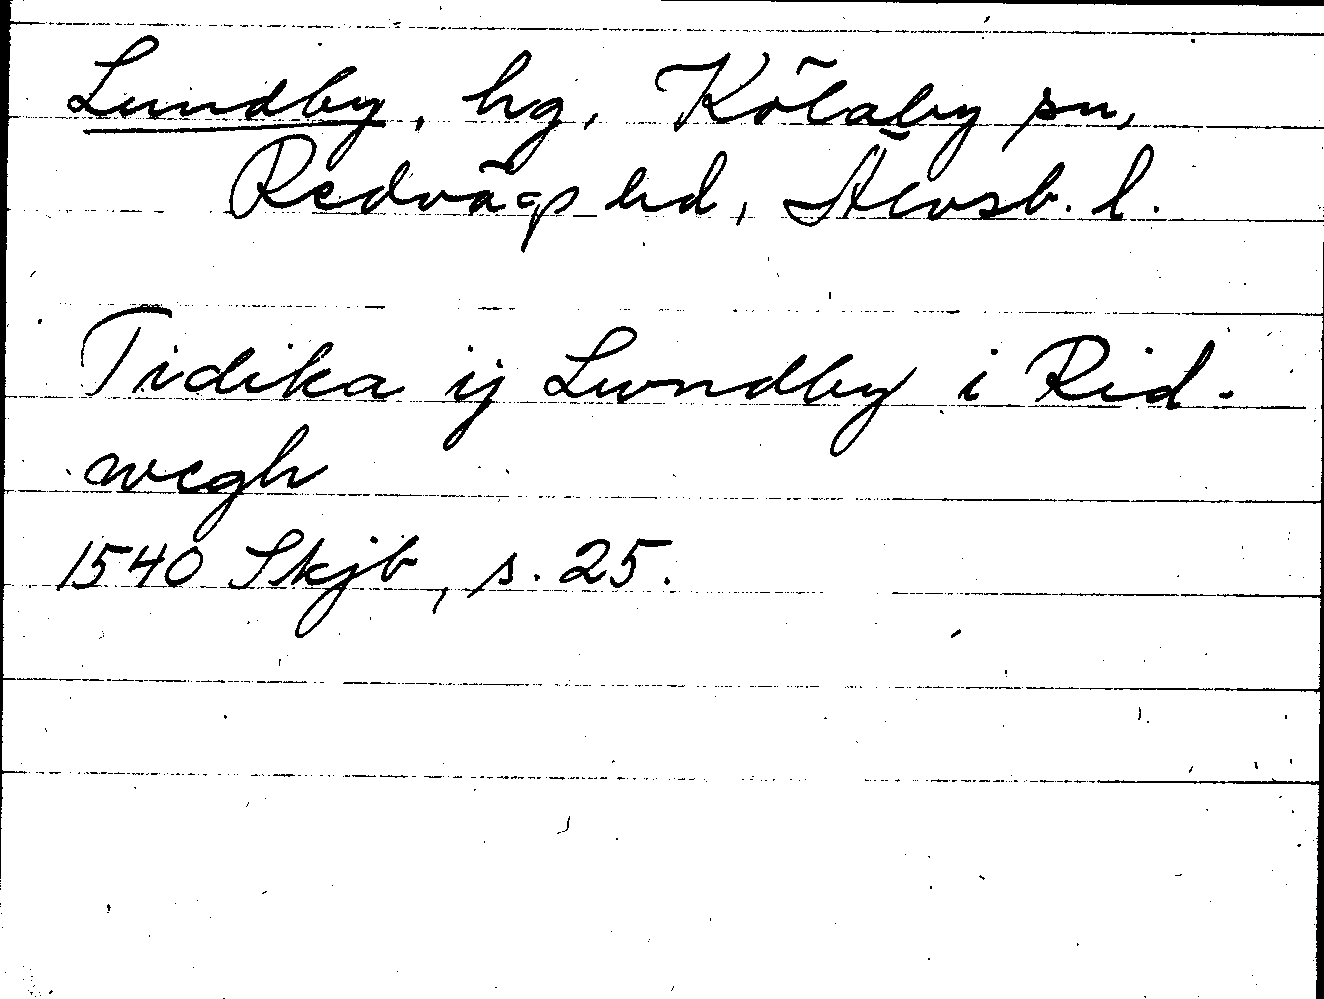 Lundby, hg, Kölaby sn,
Redvägs hd, Älvsb. l.
Tidika ij Lwndby i Rid-
wegh
1540 Skjb, s. 25.